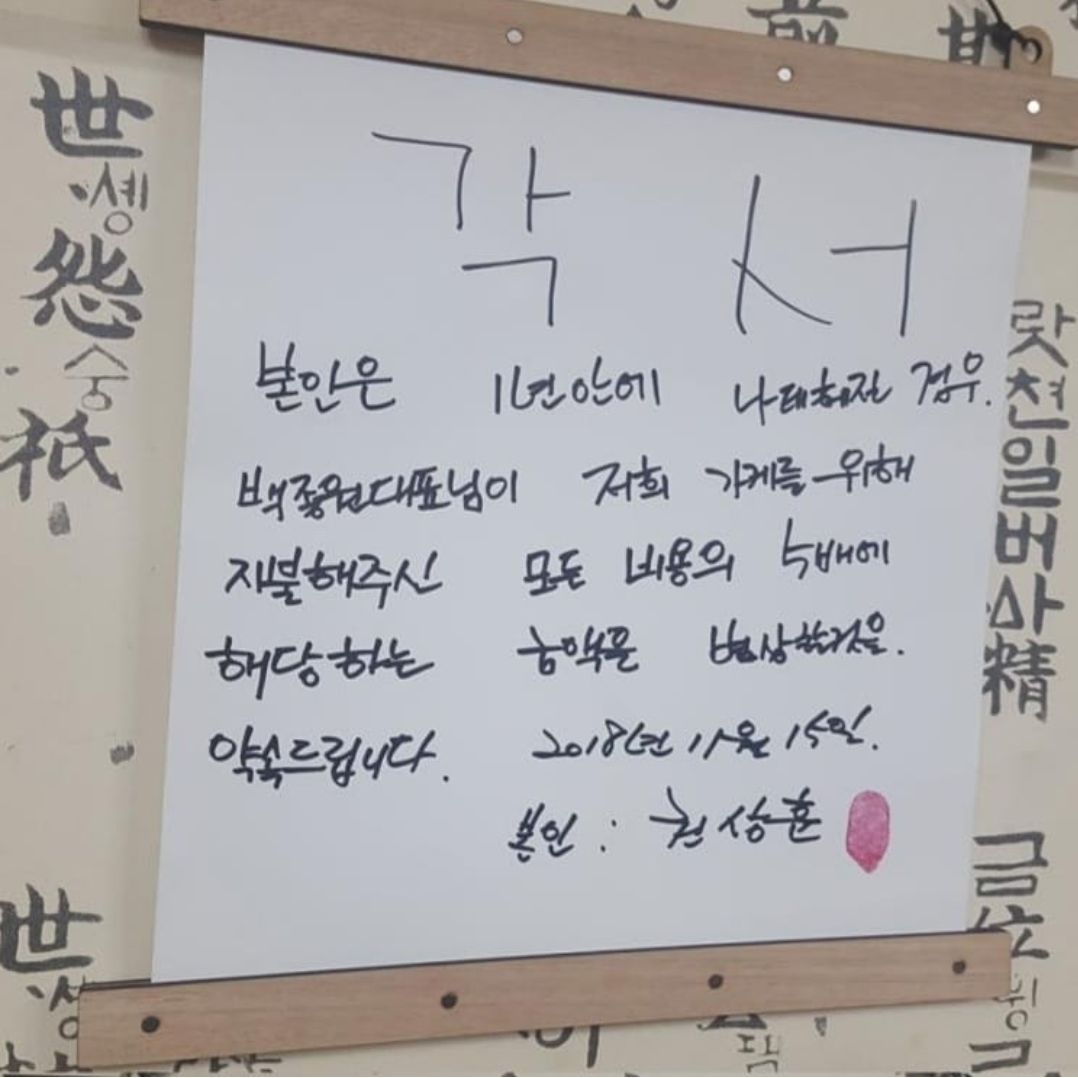 각서
본인은 1년안에 나태해진 경우.
백종원대표님이 저희 가게를 위해
지불해주신 모든 비용의 5배에
해당하는 금액을 변상할것을.
약속드립니다. 2018년 11월 15일.
본인 : 권상훈
世
솅
怨
숭
祇
랏
천
일
버
사
精
금
世